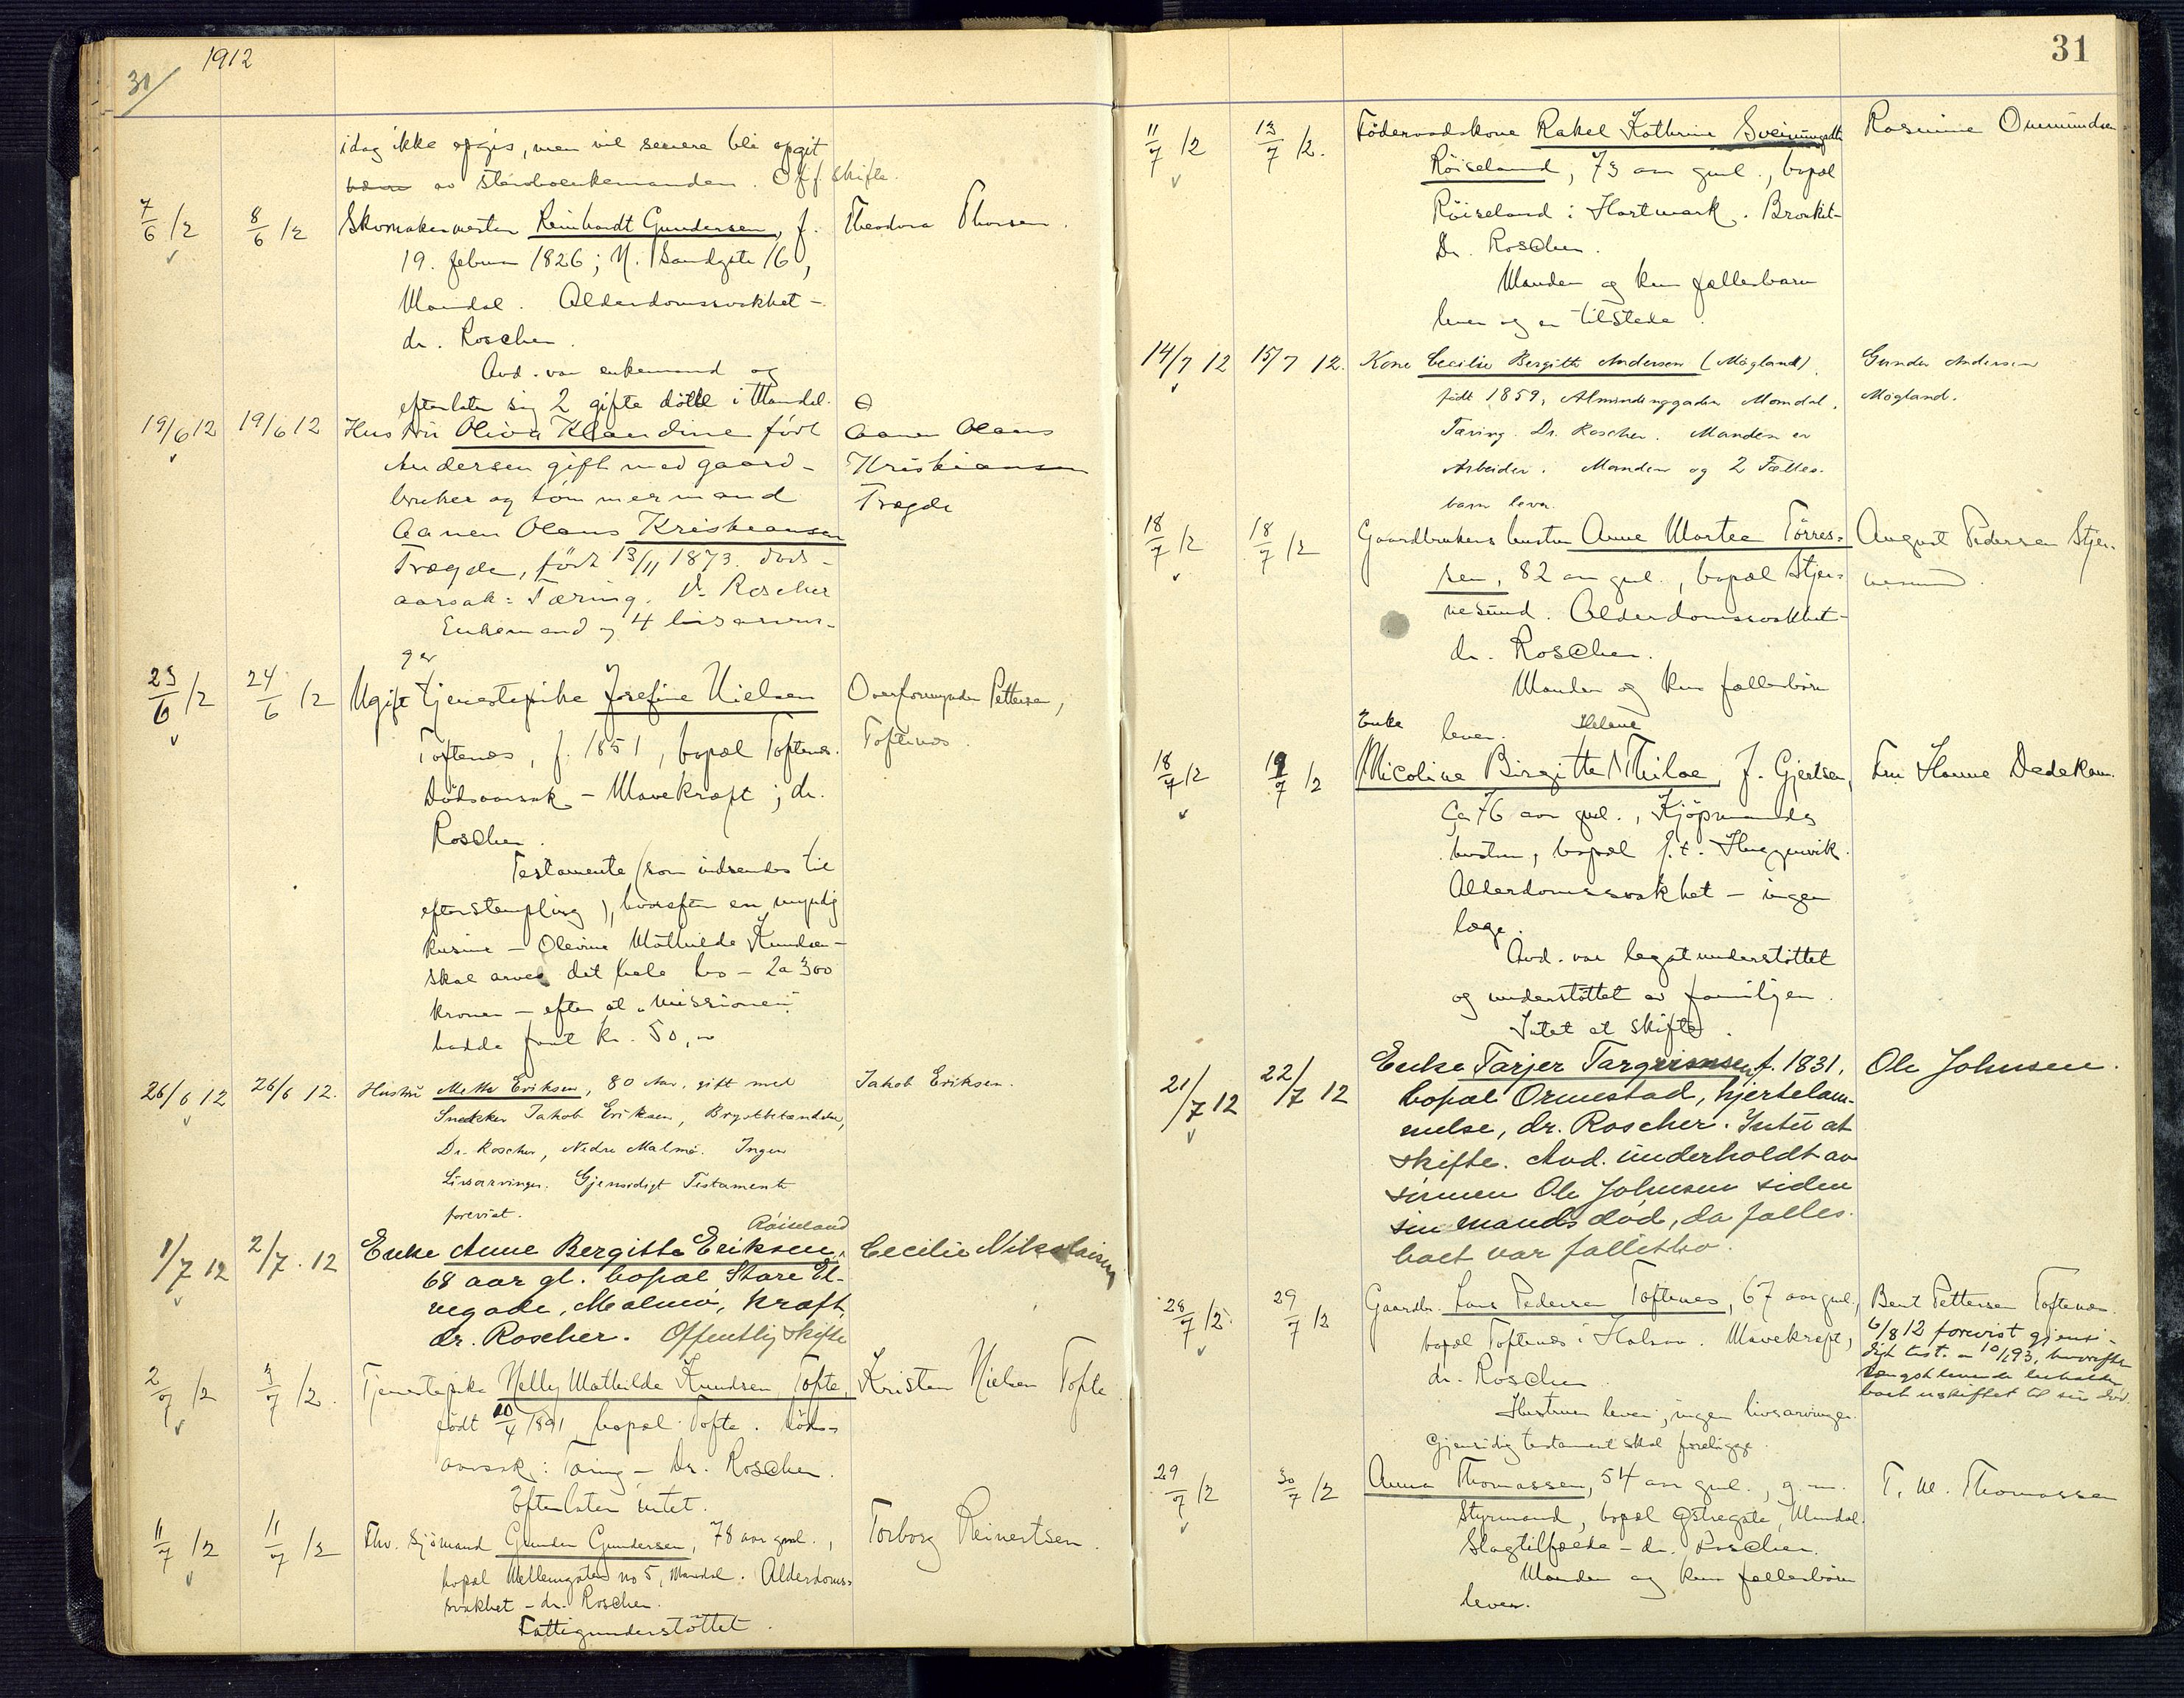 1912
31/
idag ikke opgis, men vil senere bli opgit
av sterboenkemanden. Off skifte.
7/6 12
8/6 12
Skomakermester Reinhardt Gundersen, f.
19. februar 1826; N. Sandgate 16,
Mandal. Alderdomssvakhet -
dr. Roscher.
Avd. var enkemand og
efterlater sig 2 gifte døttre i Mandal.
Theodora Thorsen.
19/6 12
19/6 12
Hustru Oliva Klaudine født
Andersen gift med gaard-
bruker og tømmermand
Aanen Olaus Kristiansen
Trægde, født 13/11 1873. Døds-
aarsak: Tæring. Dr Roscher
Enkemand og 4 livsarvin-
ger
Aanen Olaus
Kristiansen
Trægde
23/6 12
24/6 12
Ugift tjenestepike Josefine Nielsen
Toftenes, f. 1851, bopæl Toftenes.
Dødsaarsak - Mavekræft; dr.
Roscher.
Testamente (som indsendes til
efterstempling), hvorefter en myndig
kusine - Olevine Mathilde Knudsen -
skal arve det hele bo - 2 a 300
kroner - efter at "missionen"
hadde faat kr. 50,-
Overformynder Pettersen,
Toftenes.
26/6 12
26/6 12.
Hustru Mette Eriksen, 80 Aar, gift med
Snekker Jakob Eriksen, Brystbetændelse,
Dr. Roscher, Nedre Malmø. Ingen
Livsarvinger. Gjensidigt Testamente
forevist.
Jakob Eriksen.
1/7 12
2/7. 12
Røiseland
Enke Anne Bergitte Eriksen,
68 aar gl. bopæl Store El-
vegade, Malmø, kræft,
dr. Roscher. Offentlig skifte
Cecilie Nikolaisen
2/7 12
3/7 12.
Tjenestepike Nelly Mathilde Knudsen Tofte,
født 20/4 1891, bopæl Tofte. Døds-
aarsak: Tæring - Dr. Roscher.
Efterlater intet.
Kristen Nielsen Tofte
11/7 12
11/7 12
Fhv. Sjømand Gunder Gundersen, 78 aar gml.,
bopæl Mellemgaten no 5, Mandal. Alderdoms-
svakhet - dr. Roscher.
Fattigunderstøttet.
Torborg Reinertsen.
31
11/7 12
13/7 12.
Føderaadskone Rakel Kathrine Sveinungsdtr
Røiseland, 73 aar gml., bopæl
Røiseland i Hartmark. Bronkit-
Dr. Roscher.
Manden og kun fællesbarn
lever og er tilstede.
Rosmine Ommundsen
14/7 12
15/7 12.
Kone Cecilie Bergitte Andersen (Møgland),
født 1859, Almindinggaden Mandal.
Tæring. Dr. Roscher. Manden er
Arbeider. Manden og 2 Fælles-
barn lever.
Gunder Andersen
Møgland.
18/7 12
18/7 12
Gaardbrukers hustru Anne Martea Tørres-
sen, 82 aar gml., bopæl Stjer-
nesund. Alderdomssvakhet -
dr. Roscher.
Manden og kun fællesbørn
lever.
August Pedersen Stjer-
nesund.
18/7 12
19/7 12
Enke
Helene
Nicoline Birgitte Thiloe, f. Gjertsen,
Ca 76 aar gml., Kjøpmands
hustru, bopæl f.t. Haggenvik.
Alderdomssvakhet - ingen
læge.
Avd. var legatunderstøttet
og understøttet av familjen.
Intet at skifte.
Fru Hanne Dedekam.
21/7 12
22/7 12
Enke Tarjer Targrimsen, f. 1831,
bopæl Ormestad, hjertelam-
melse, dr. Roscher. Intet at
skifte. Avd. underholdt av
sønnen Ole Johnsen siden
sin mands død, da fælles-
boet var fallitbo.
Ole Johnsen.
28/7 12.
29/7 12
Gaardbr. Lars Pedersen Toftenes, 67 aar gml.,
bopæl Toftenes i Halsaa. Mavekræft,
dr. Roscher
Hustruen lever, ingen livsarvinger.
Gjensidig testament skal foreligge.
Bent Pettersen Toftenes.
6/8 12 forevist gjensi-
digt test. hvorefter
længstlevende beholder
boet uskiftet til sin død.
29/7 12
30/7 12
Anna Thomassen, 54 aar gml., g. m.
Styrmand, bopæl Østregate, Mandal.
Slagtilfælde - dr. Roscher.
Manden og kun fællesbørn
lever.
T. M. Thomassen